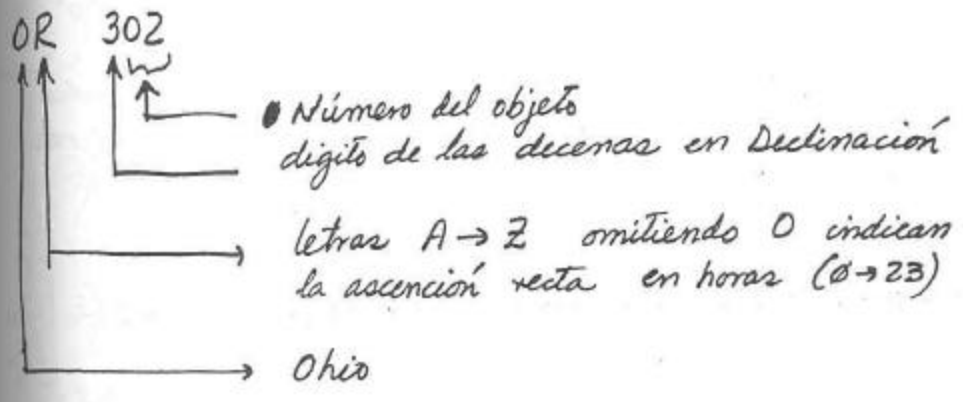 OR 302
Número del objeto
digito de las decenas en Declinación
letras A → Z omitiendo O indican
la ascención recta en horas (ø→23)
Ohio